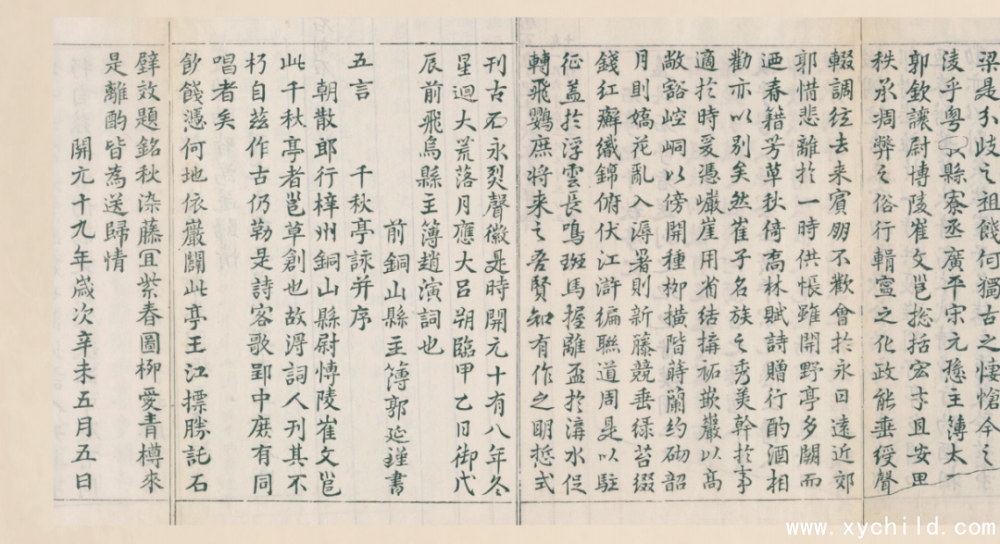 梁是分岐之祖餞何獨古之悽愴今之
淩乎粤以縣寮丞廣平宋元愻主簿太
郭欽讓尉博陵崔文邕捴括宏才且安思
秩承凋弊之俗行輯寧之化政能垂綬聲
輟調絃去来賓朋不歡會於永日遠近郊
郭惜悲離於一時供悵雖開野亭多闕而
迺春籍芳草秋倚高林賦詩贈行酌酒相
勸亦以别矣然崔子名族之秀美幹於事
適於時爰憑巘崖用省結搆祐嵌巖以高
敞豁崆峒以傍開種柳横階蒔蘭約砌韶
月則嬌花亂入溽暑則新藤競垂緑苔綴
錢紅癬織錦俯伏江滸徧聮道周是以駐
征蓋於浮雲長鳴班馬握離盃於溝水促
轉飛鸚庶将来之吾賢知有作之明悊式
刊古石永烈聲徽是時開元十有八年冬
星迴大荒落月應大吕朔臨甲乙日御戊
辰前飛烏縣主簿趙演詞也
前銅山縣主簿郭延瑾書
五言 千秋亭詠并序
朝散郎行梓州銅山縣尉愽陵崔文邕
此千秋亭者邕草創也故淂詞人刊其不
朽自兹作古仍勒是詩客歌郢中庻有同
唱者矣
飮餞憑何地依巖闢此亭王江摽勝託石
壁效題銘秋染藤宜紫春圖柳愛青樽來
是離酌皆為送歸情
開元十九年歳次辛未五月五日
www.xychild.com